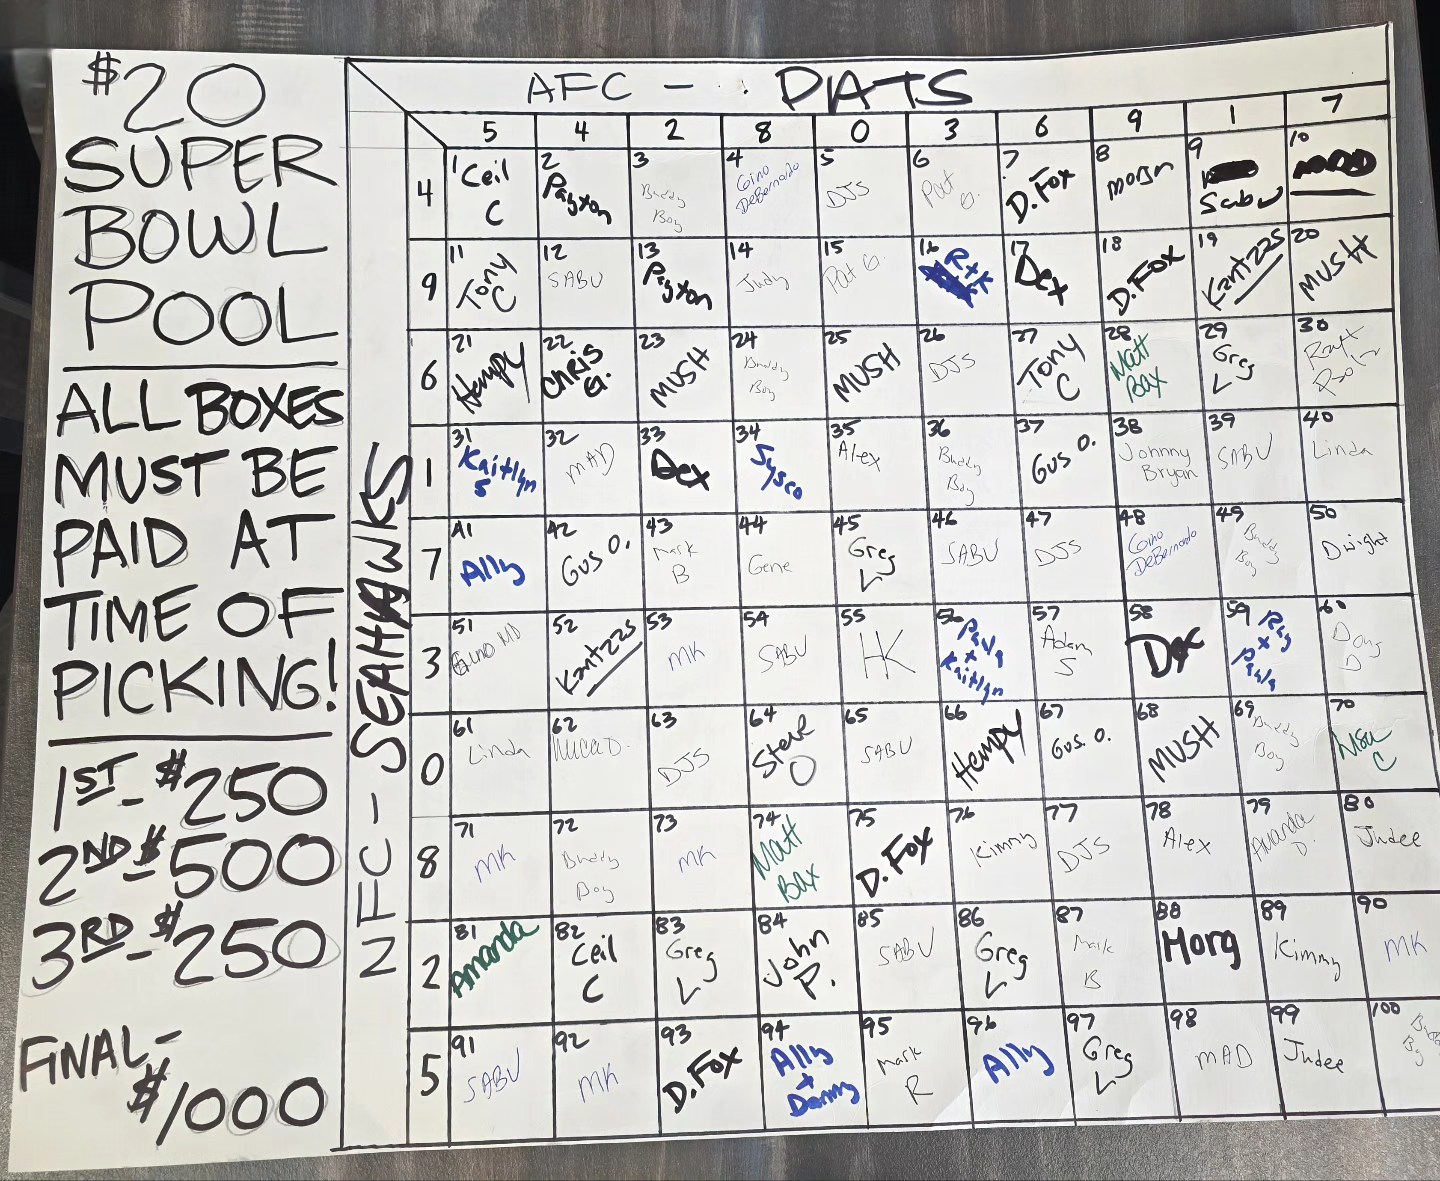 $20
SUPER
BOWL
POOL
ALL BOXES
MUST BE
PAID AT
TIME OF
PICKING!
1ST - $250
2ND - $500
3RD - $250
FINAL -
$1000
AFC - PATS
NFC - SEAHAWKS
5 4 2 8 0 3 6 9 1 7
4
1 Ceil C
2 Payton
3 Buddy Boy
4 Gino DeBernardo
5 DJS
6 Pat G.
7 D. Fox
8 Morgn
9 Sabu
10
9
11 Tony C
12 SABU
13 Payton
14 Judy
15 Pat G.
16
17 Dex
18 D. Fox
19 Kantzzs
20 MUSH
6
21 Hempy
22 CHRIS G.
23 MUSH
24 Buddy Boy
25 MUSH
26 DJS
27 Tony C
28 Matt Bax
29 Greg L
30
1
31 Kaitlyn S
32 MAD
33 Dex
34 Sysco
35 Alex
36 Buddy Boy
37 GUS O.
38 Johnny Bryan
39 SABU
40 Linda
7
41 Ally
42 GUS O.
43 Mark B
44 Gene
45 Greg L
46 SABU
47 DJS
48 Gino DeBernardo
49 Buddy Boy
50 Dwight
3
51
52 Kantzzs
53 MK
54 SABU
55 HK
56 + Kaitlyn
57 Adam S
58
59
60 Doug D
0
61 Linda
62
63 DJS
64 Steve O
65 SABU
66 Hempy
67 GUS. O.
68 MUSH
69 Buddy Boy
70 Lisa C
8
71 MK
72 Buddy Boy
73 MK
74 Matt Bax
75 D. Fox
76 Kimmy
77 DJS
78 Alex
79 Amanda D.
80 Judee
2
81 Amanda
82 Ceil C
83 Greg L
84 John P.
85 SABU
86 Greg L
87 Mark B
88 Morg
89 Kimmy
90 MK
5
91 SABU
92 MK
93 D. Fox
94 Ally + Danny
95 Mark R
96 Ally
97 Greg L
98 MAD
99 Judee
100